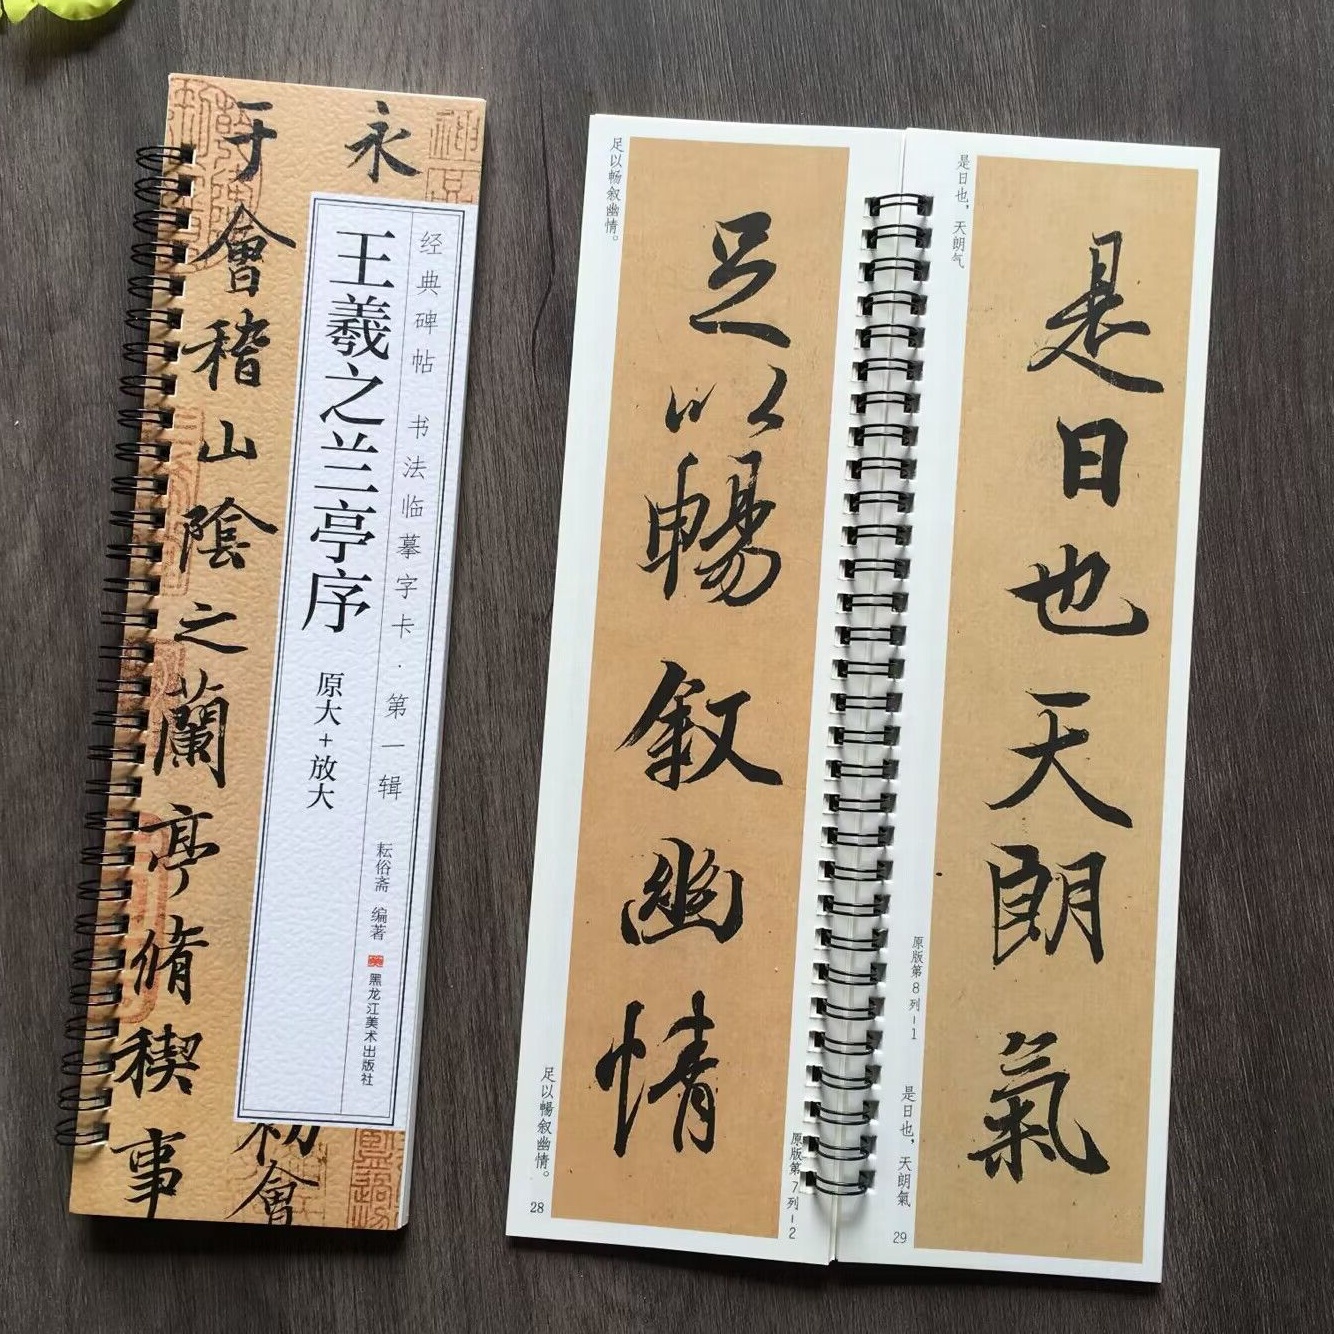 永
于會稽山陰之蘭亭脩稧事
初會
经典碑帖 书法临摹字卡·第一辑
王羲之兰亭序 原大+放大
耘俗斋 编著
黑龙江美术出版社
足以畅叙幽情。
足以暢叙幽情
足以暢叙幽情。
28
原版第7列-2
是日也，天朗气
是日也天朗氣
原版第8列-1
是日也，天朗氣
29